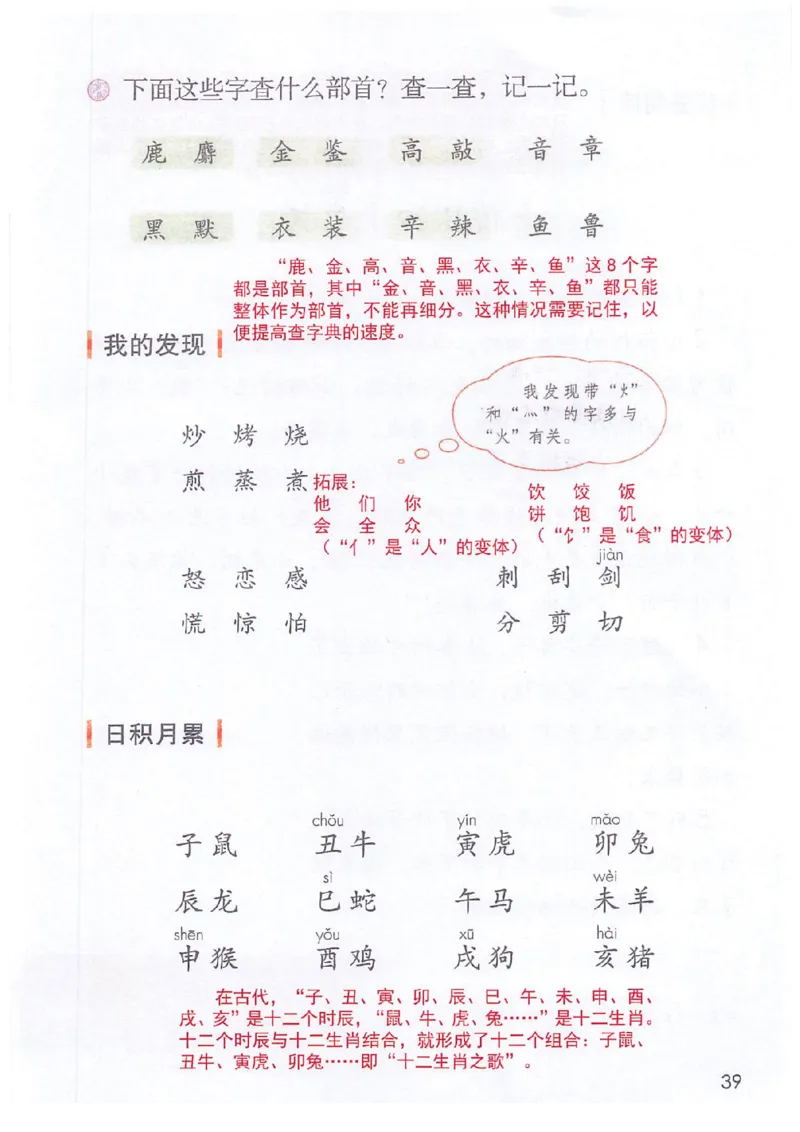 下面这些字查什么部首？查一查，记一记。
鹿 麝 金 鉴 高 敲 音 章
黑 默 衣 装 辛 辣 鱼 鲁
“鹿、金、高、音、黑、衣、辛、鱼”这8个字
都是部首，其中“金、音、黑、衣、辛、鱼”都只能
整体作为部首，不能再细分。这种情况需要记住，以
便提高查字典的速度。
我的发现
我发现带“火”
和“灬”的字多与
“火”有关。
炒 烤 烧
煎 蒸 煮
拓展：
他 们 你
会 全 众
（“亻”是“人”的变体）
饮 饺 饭
饼 饱 饥
（“饣”是“食”的变体）
怒 恋 感
慌 惊 怕
jiàn
刺 刮 剑
分 剪 切
日积月累
chǒu yín mǎo
子鼠 丑牛 寅虎 卯兔
sì wèi
辰龙 巳蛇 午马 未羊
shēn yǒu xū hài
申猴 酉鸡 戌狗 亥猪
在古代，“子、丑、寅、卯、辰、巳、午、未、申、酉、
戌、亥”是十二个时辰，“鼠、牛、虎、兔……”是十二生肖。
十二个时辰与十二生肖结合，就形成了十二个组合：子鼠、
丑牛、寅虎、卯兔……即“十二生肖之歌”。
39